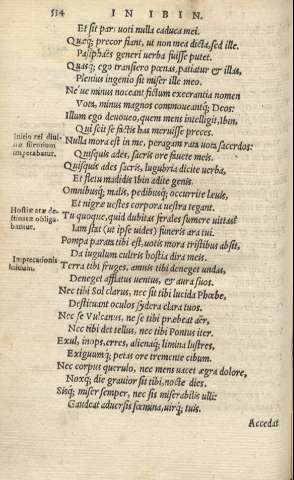 534 IN IBIN.
Et sit pars voti nulla caduca mei.
Quæq; precor fiant, ut non mea dicta, sed ille.
Pasiphaës generi verba fuisse putet.
Quasq; ego transiero pœnas, patiatur & illas,
Plenius ingenio sit miser ille meo.
Ne ve minus noceant fictum execrantia nomen
Vota, minus magnos commoueantq; Deos:
Illum ego deuoueo, quem mens intelligit, Ibin,
Qui scit se factis has meruisse preces.
Inicio rei diui-
næ silentium
imperabatur.
Nulla mora est in me, peragam rata vota sacerdos:
Quisquis ades, sacris ore fauete meis.
Quisquis ades sacris, lugubria dicite verba,
Et fletu madidis Ibin adite genis.
Omnibusq; malis, pedibusq; occurrite læuis,
Et nigræ vestes corpora vestra tegant.
Hostiæ aræ de-
stinatæ obliga-
bantur.
Tu quoque, quid dubitas ferales sumere vittas?
Iam stat (ut ipse vides) funeris ara tui.
Pompa parata tibi est, uotis mora tristibus absit,
Da iugulum cultris hostia dira meis.
Imprecationis
initium.
Terra tibi fruges, amnis tibi deneget undas,
Deneget afflatus ventus, & aura suos.
Nec tibi Sol clarus, nec sit tibi lucida Phœbe,
Destituant oculos sydera clara tuos.
Nec se Vulcanus, ne se tibi præbeat aër,
Nec tibi det tellus, nec tibi Pontus iter.
Exul, inops, erres, alienaq; limina lustres,
Exiguumq; petas ore tremente cibum.
Nec corpus querulo, nec mens vacet ægra dolore,
Noxq; die grauior sit tibi, nocte dies.
Sisq; miser semper, nec sis miserabilis ulli:
Gaudeat aduersis fœmina, uirq; tuis.
Accedat